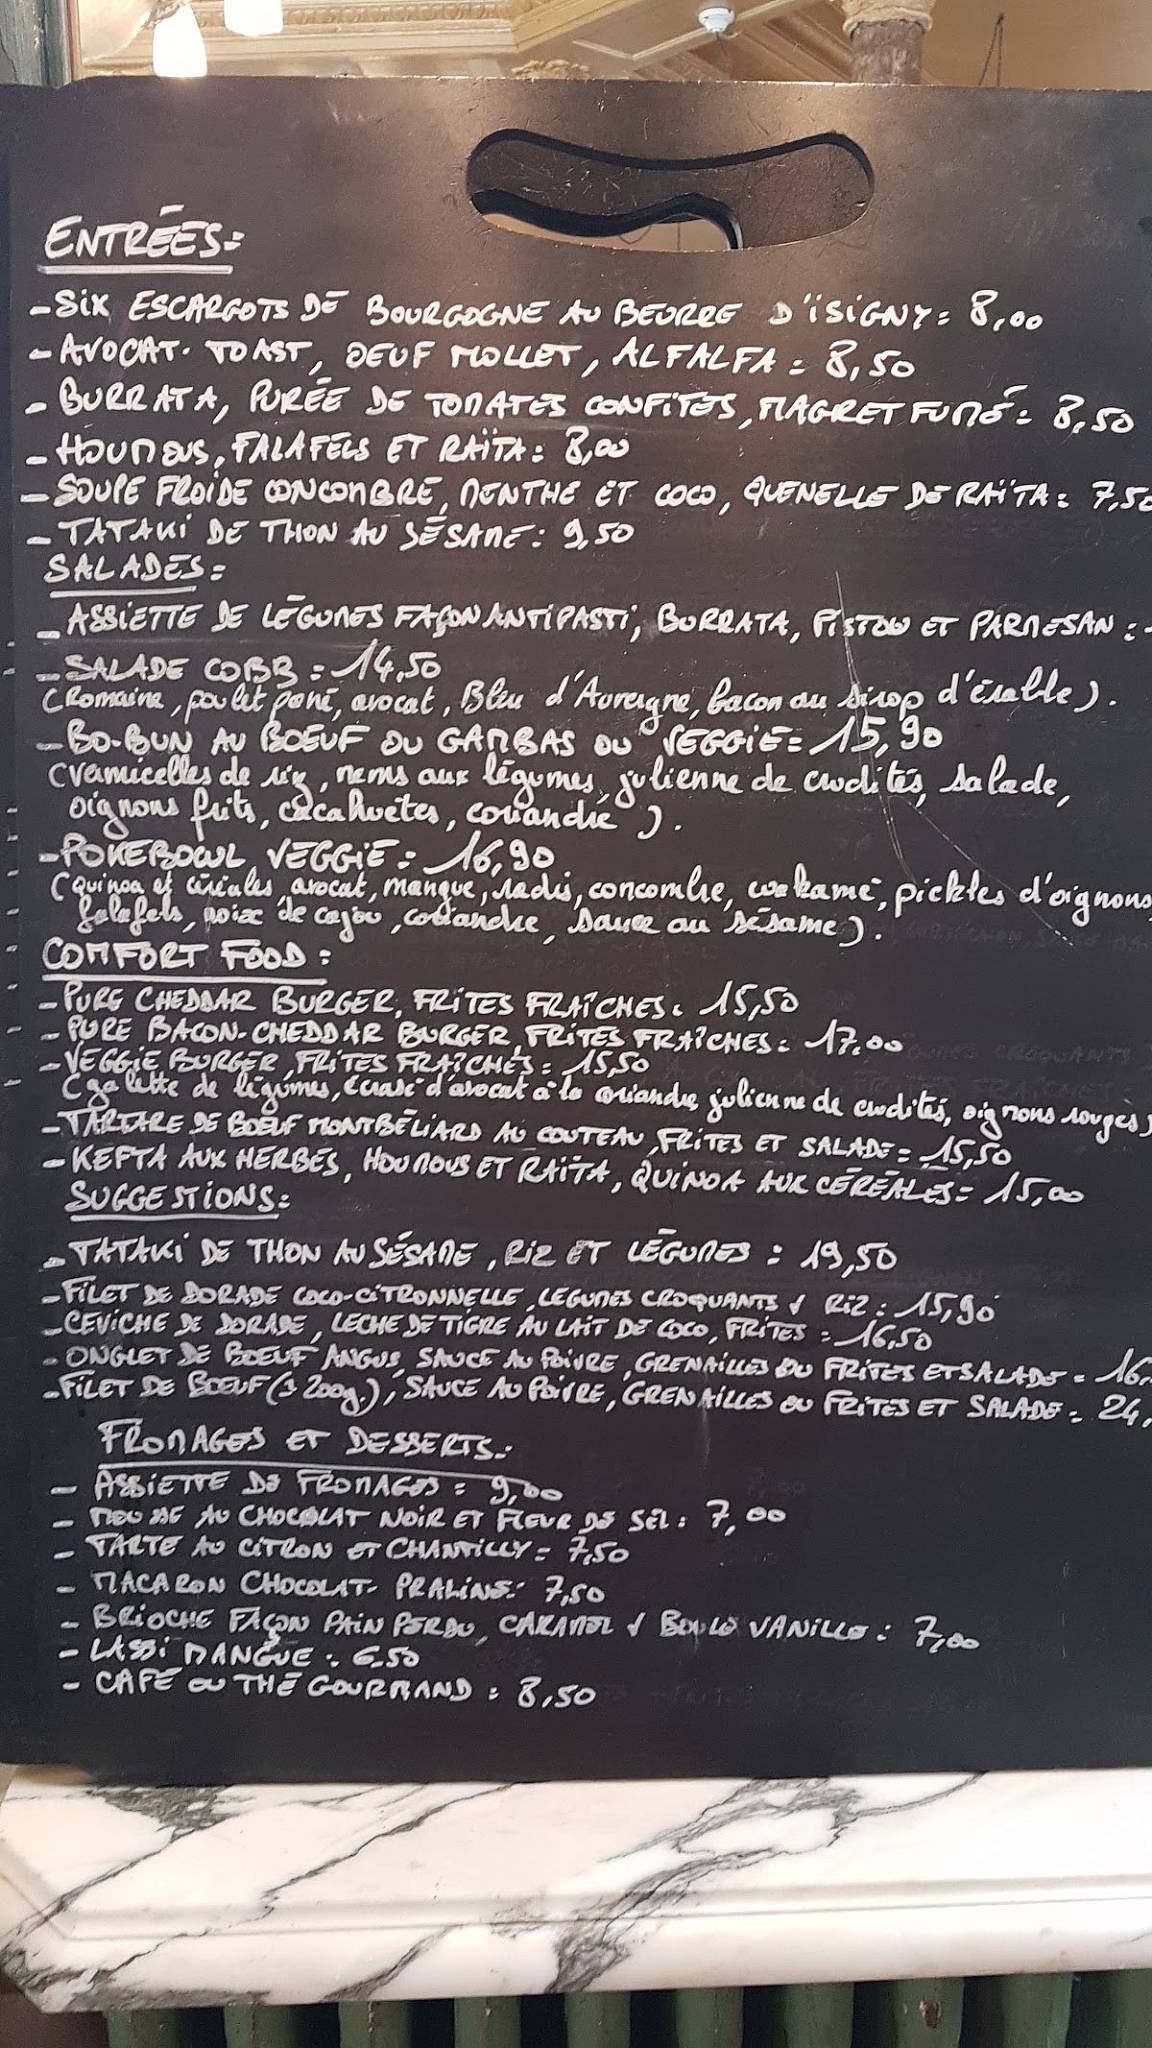 ENTRÉES:
- SIX ESCARGOTS DE BOURGOGNE AU BEURRE D'ÏSIGNY: 8,00
- AVOCAT-TOAST, OEUF MOLLET, ALFALFA: 8,50
- BURRATA, PURÉE DE TOMATES CONFITES, MAGRET FUMÉ: 8,50
- HOUMOUS, FALAFELS ET RAÏTA: 8,00
- SOUPE FROIDE CONCOMBRE, MENTHE ET COCO, QUENELLE DE RAÏTA: 7,50
- TATAKI DE THON AU SÉSAME: 9,50
SALADES:
- ASSIETTE DE LÉGUMES FAÇON ANTIPASTI, BURRATA, PISTOU ET PARMESAN:
- SALADE COBB: 14,50
(Romaine, poulet pané, avocat, Bleu d'Auvergne, bacon au sirop d'érable).
- BO-BUN AU BOEUF OU GAMBAS OU VEGGIE: 15,90
(Vermicelles de riz, nems aux légumes, julienne de crudités, salade,
oignons frits, cacahuètes, coriandre).
- POKEBOWL VEGGIE: 16,90
(Quinoa et céréales, avocat, mangue, radis, concombre, wakamé, pickles d'oignons,
falafels, noix de cajou, coriandre, sauce au sésame).
COMFORT FOOD:
- PURE CHEDDAR BURGER, FRITES FRAÎCHES: 15,50
- PURE BACON-CHEDDAR BURGER, FRITES FRAÎCHES: 17,00
- VEGGIE BURGER, FRITES FRAÎCHES: 15,50
(galette de légumes, écrasé d'avocat à la coriandre, julienne de crudités, oignons rouges)
- TARTARE DE BOEUF MONTBÉLIARD AU COUTEAU, FRITES ET SALADE: 15,50
- KEFTA AUX HERBES, HOUMOUS ET RAÏTA, QUINOA AUX CÉRÉALES: 15,00
SUGGESTIONS:
- TATAKI DE THON AU SÉSAME, RIZ ET LÉGUMES: 19,50
- FILET DE DORADE COCO-CITRONNELLE, LÉGUMES CROQUANTS & RIZ: 15,90
- CEVICHE DE DORADE, LECHE DE TIGRE AU LAIT DE COCO, FRITES: 16,50
- ONGLET DE BOEUF ANGUS, SAUCE AU POIVRE, GRENAILLES OU FRITES ET SALADE: 16,
- FILET DE BOEUF (± 200g), SAUCE AU POIVRE, GRENAILLES OU FRITES ET SALADE: 24,
FROMAGES ET DESSERTS:
- ASSIETTE DE FROMAGES: 9,00
- MOUSSE AU CHOCOLAT NOIR ET FLEUR DE SEL: 7,00
- TARTE AU CITRON ET CHANTILLY: 7,50
- MACARON CHOCOLAT-PRALINE: 7,50
- BRIOCHE FAÇON PAIN PERDU, CARAMEL & BOULE VANILLE: 7,00
- LASSI MANGUE: 6.50
- CAFÉ OU THÉ GOURMAND: 8,50